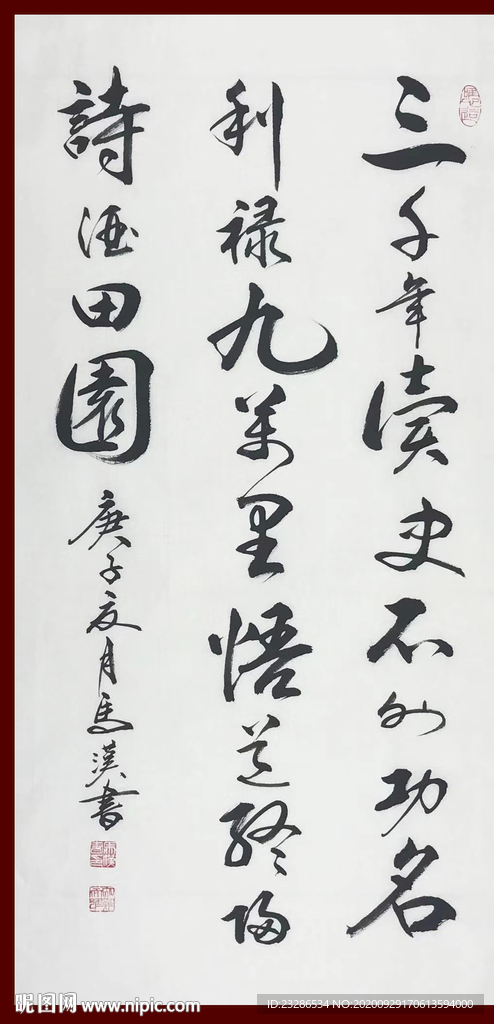 三千年讀史不外功名
利禄九萬里悟道終歸
詩酒田園
庚子夏月馬漢書
昵图网 www.nipic.com
ID:23286534 NO:20200929170613594000